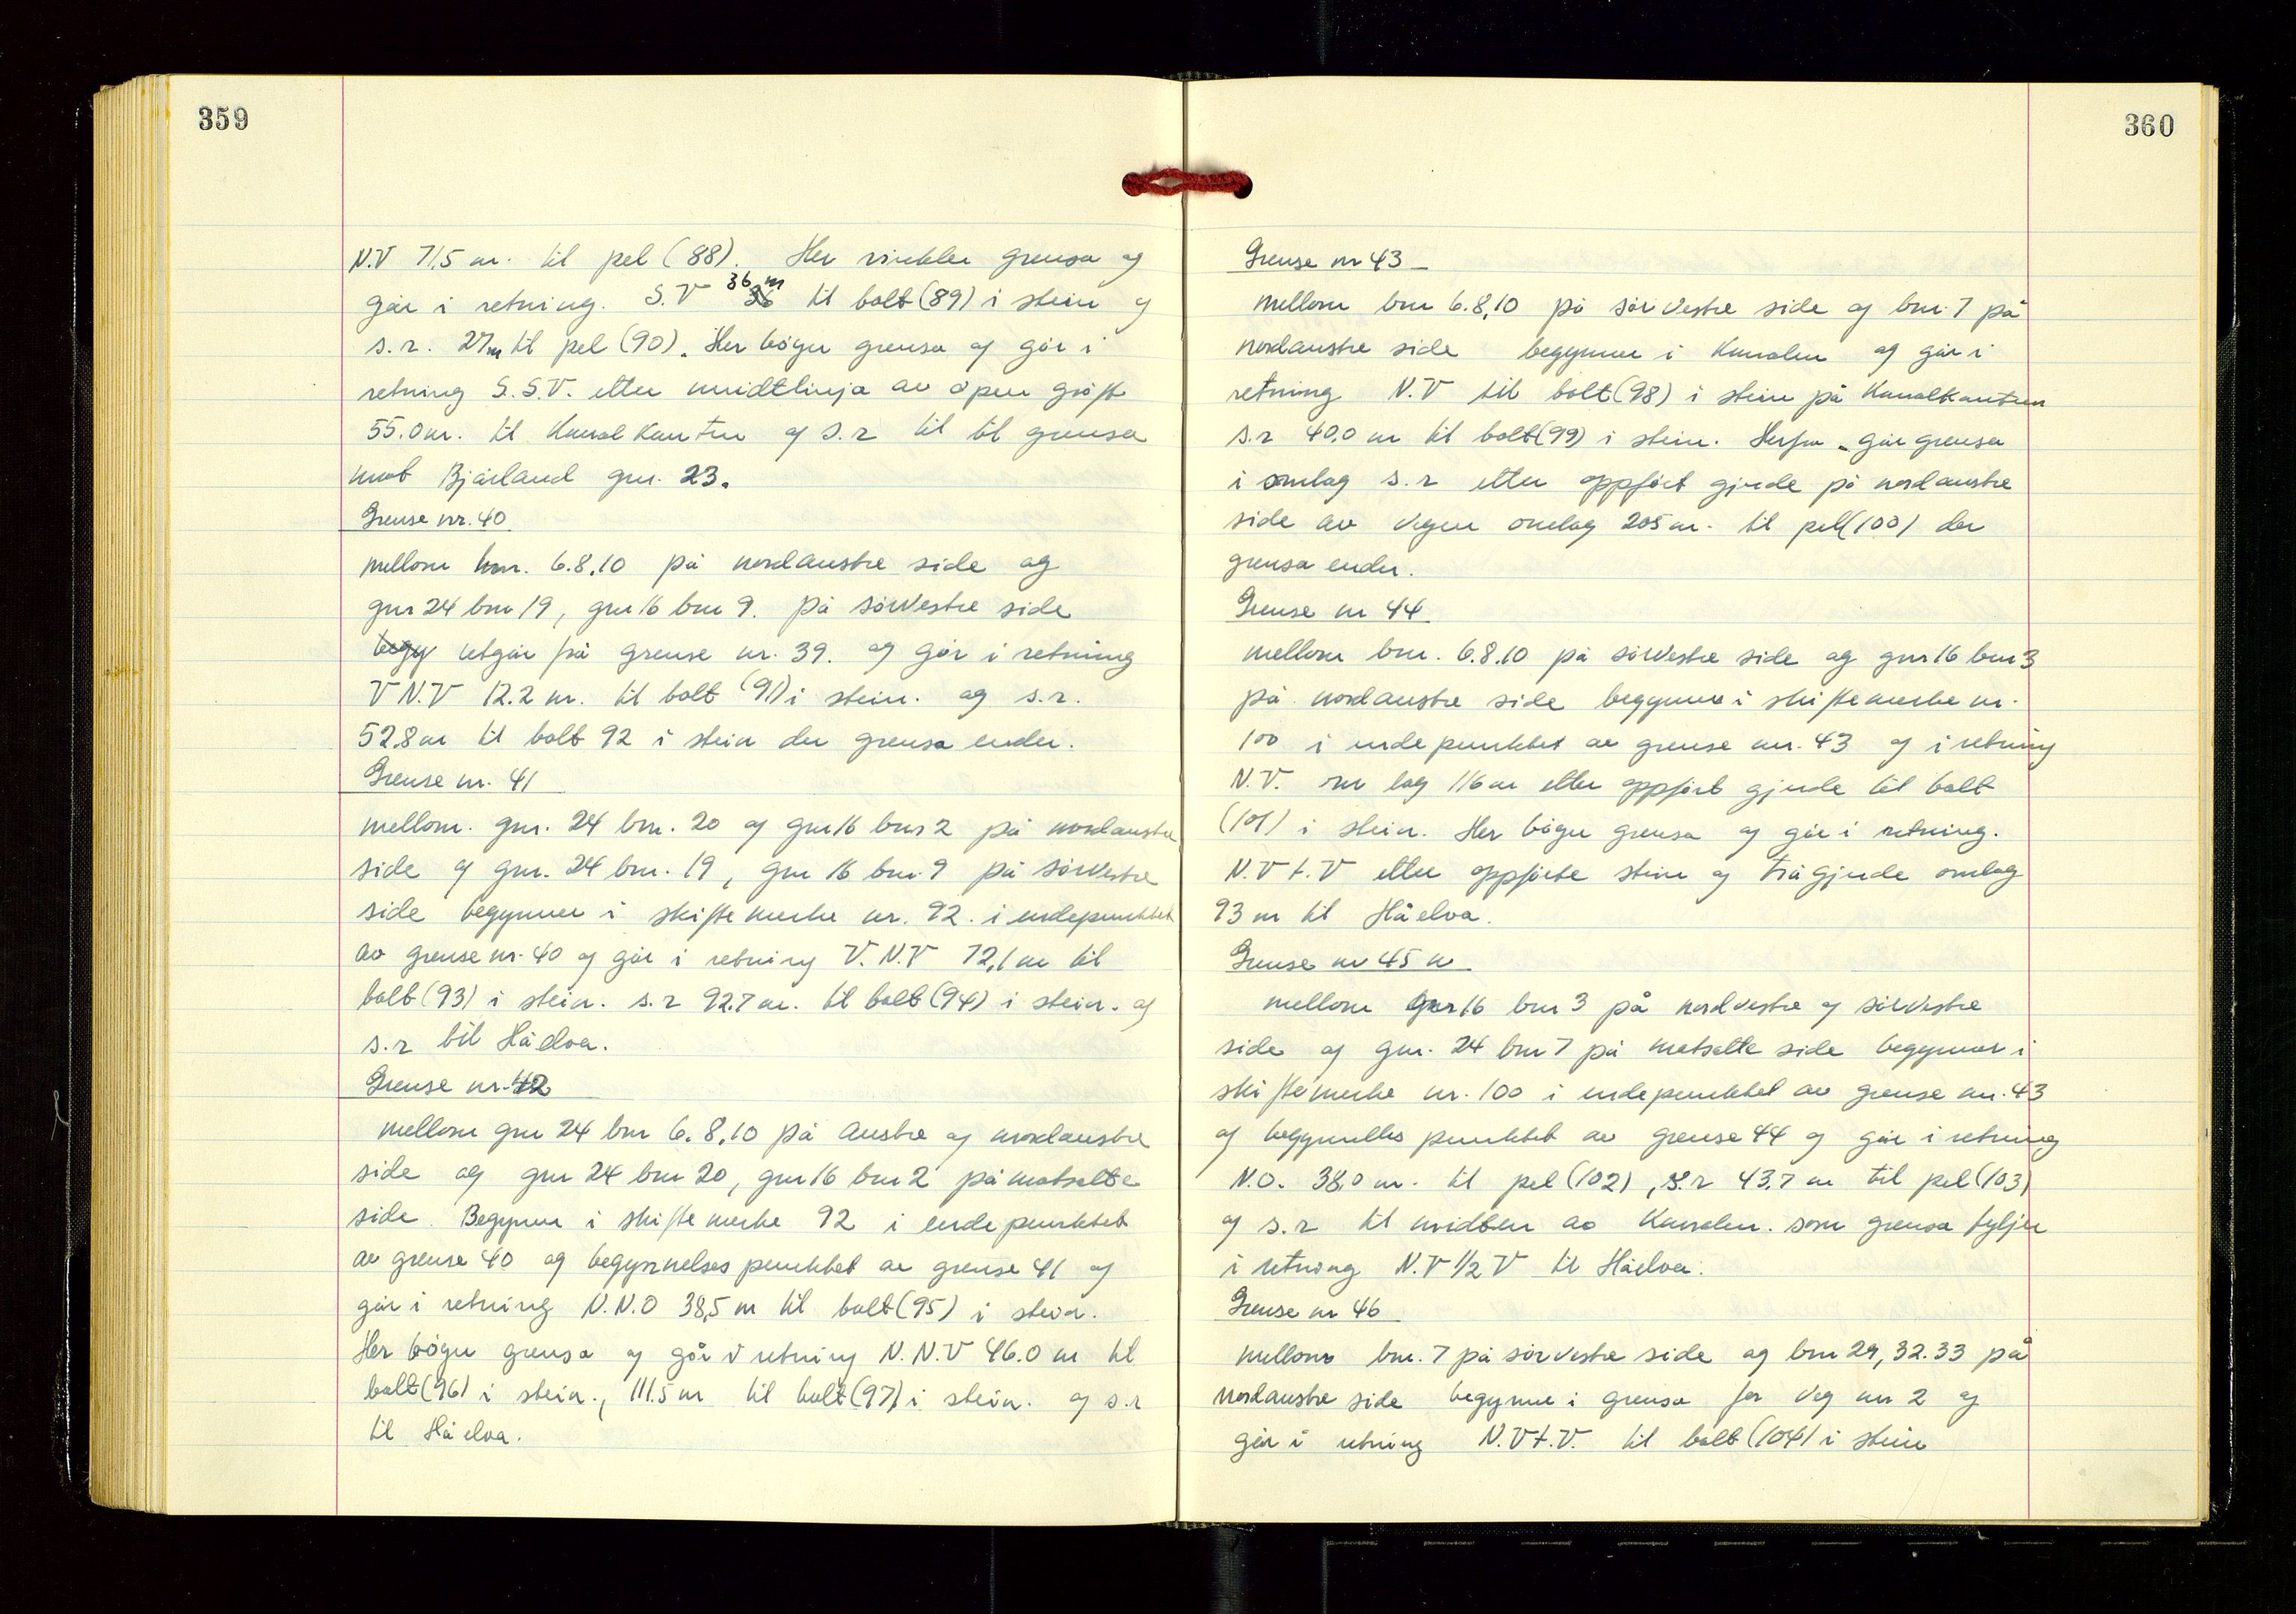 359
N.V 71,5 m. til pel (88). Her vinkler grensa og
går i retning. S.V 36 m til bolt (89) i stein og
s.r. 27m til pel (90). Her bøger grensa og går i
retning S.S.V. etter midtlinja av open grøft
55.0 m. til Kanalkanten og s.r til til grensa
mot Bjårland gnr. 23.
Grense nr. 40
mellom bnr. 6.8.10 på nordaustre side og
gnr 24 bnr 19, gnr 16 bnr 9. på sørvestre side
begy utgår frå grense nr. 39. og går i retning
V N.V 12.2 m. til bolt (91) i stein. og s.r.
52,8 m til bolt 92 i stein der grensa ender.
Grense nr. 41
mellom. gnr. 24 bnr. 20 og gnr 16 bnr 2 på nordaustre
side og gnr. 24 bnr. 19, gnr 16 bnr. 9 på sørvestre
side begynner i skiftemerke nr. 92. i endepunktet
av grense nr. 40 og går i retning V.N.V 72,1 m til
bolt (93) i stein. s.r 92.7 m. til bolt (94) i stein. og
s.r til Håelva.
Grense nr. 42
mellom gnr 24 bnr 6.8.10 på austre og nordaustre
side og gnr 24 bnr 20, gnr 16 bnr 2 på motsatte
side. Begynner i skiftemerke 92 i endepunktet
av grense 40 og begynnelsespunktet av grense 41 og
går i retning N.N.O 38,5 m til bolt (95) i stein.
Her bøger grensa og går i retning N.N.V 46.0 m til
bolt (96) i stein., 111.5 m til bolt (97) i stein. og s.r
til Håelva.
360
Grense nr 43
mellom bnr 6.8,10 på sørvestre side og bnr. 7 på
nordaustre side begynner i Kanalen og går i
retning N.V til bolt (98) i stein på Kanalkanten
s.r 40,0 m til bolt (99) i stein. Herfra går grensa
i omlag s.r etter oppført gjerde på nordaustre
side av vegen omlag 205 m. til pel (100) der
grensa ender.
Grense nr 44
mellom bnr. 6.8.10 på sørvestre side og gnr 16 bnr 3
på nordaustre side begynner i skiftemerke nr.
100 i endepunktet av grense nr. 43 og i retning
N.V. om lag 116 m etter oppført gjerde til bolt
(101) i stein. Her bøger grensa og går i retning.
N.V t.V etter oppførte stein og trågjerde omlag
93 m til Håelva.
Grense nr 45
mellom gnr 16 bnr 3 på nordvestre og sørvestre
side og gnr. 24 bnr 7 på motsatte side begynner i
skiftemerke nr. 100 i endepunktet av grense nr. 43
og begynnelses punktet av grense 44 og går i retning
N.O. 38,0 m. til pel (102), s.r 43.7 m til pel (103)
og s.r til midten av Kanalen. som grensa fylgjer
i retning N.V 1/2 V til Håelva.
Grense nr 46
mellom bnr. 7 på sørvestre side og bnr 29, 32.33 på
nordaustre side begynner i grensa for veg nr 2 og
går i retning N.V t.V. til bolt (104) i stein